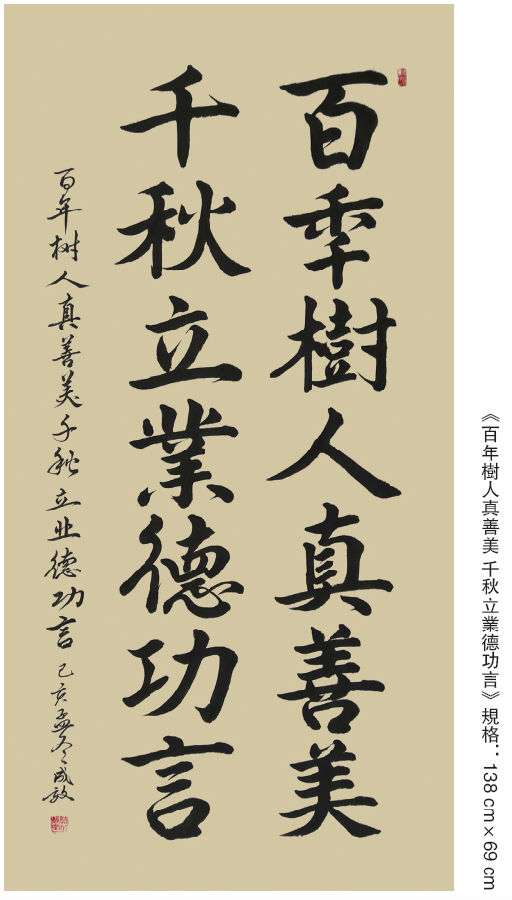 百季樹人真善美
千秋立業德功言
百年树人真善美千秋立业德功言己亥孟冬成效
《百年樹人真善美 千秋立業德功言》規格：138 cm × 69 cm